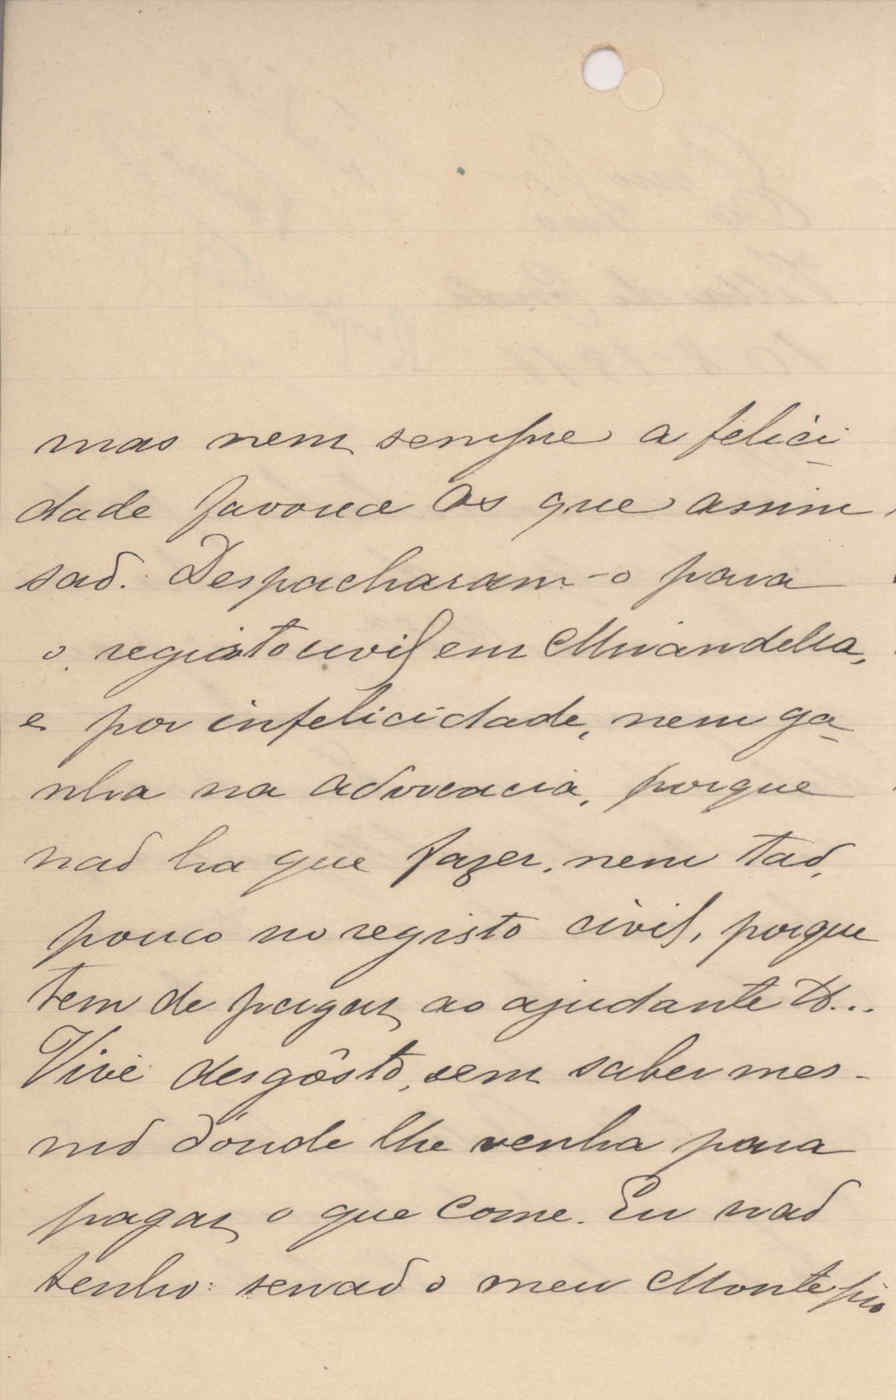 mas nem sempre a felici-
dade favorece os que assim
são. Despacharam-o para
o registo civil em Mirandella,
e por infelicidade, nem ga-
nha na advocacia, porque
não ha que fazer, nem tão,
pouco no registo civil, porque
tem de pagar ao ajudante &...
Vive desgôsto, sem saber mes-
mo dónde lhe venha para
pagar o que come. Eu não
tenho senão o meu Monte pio